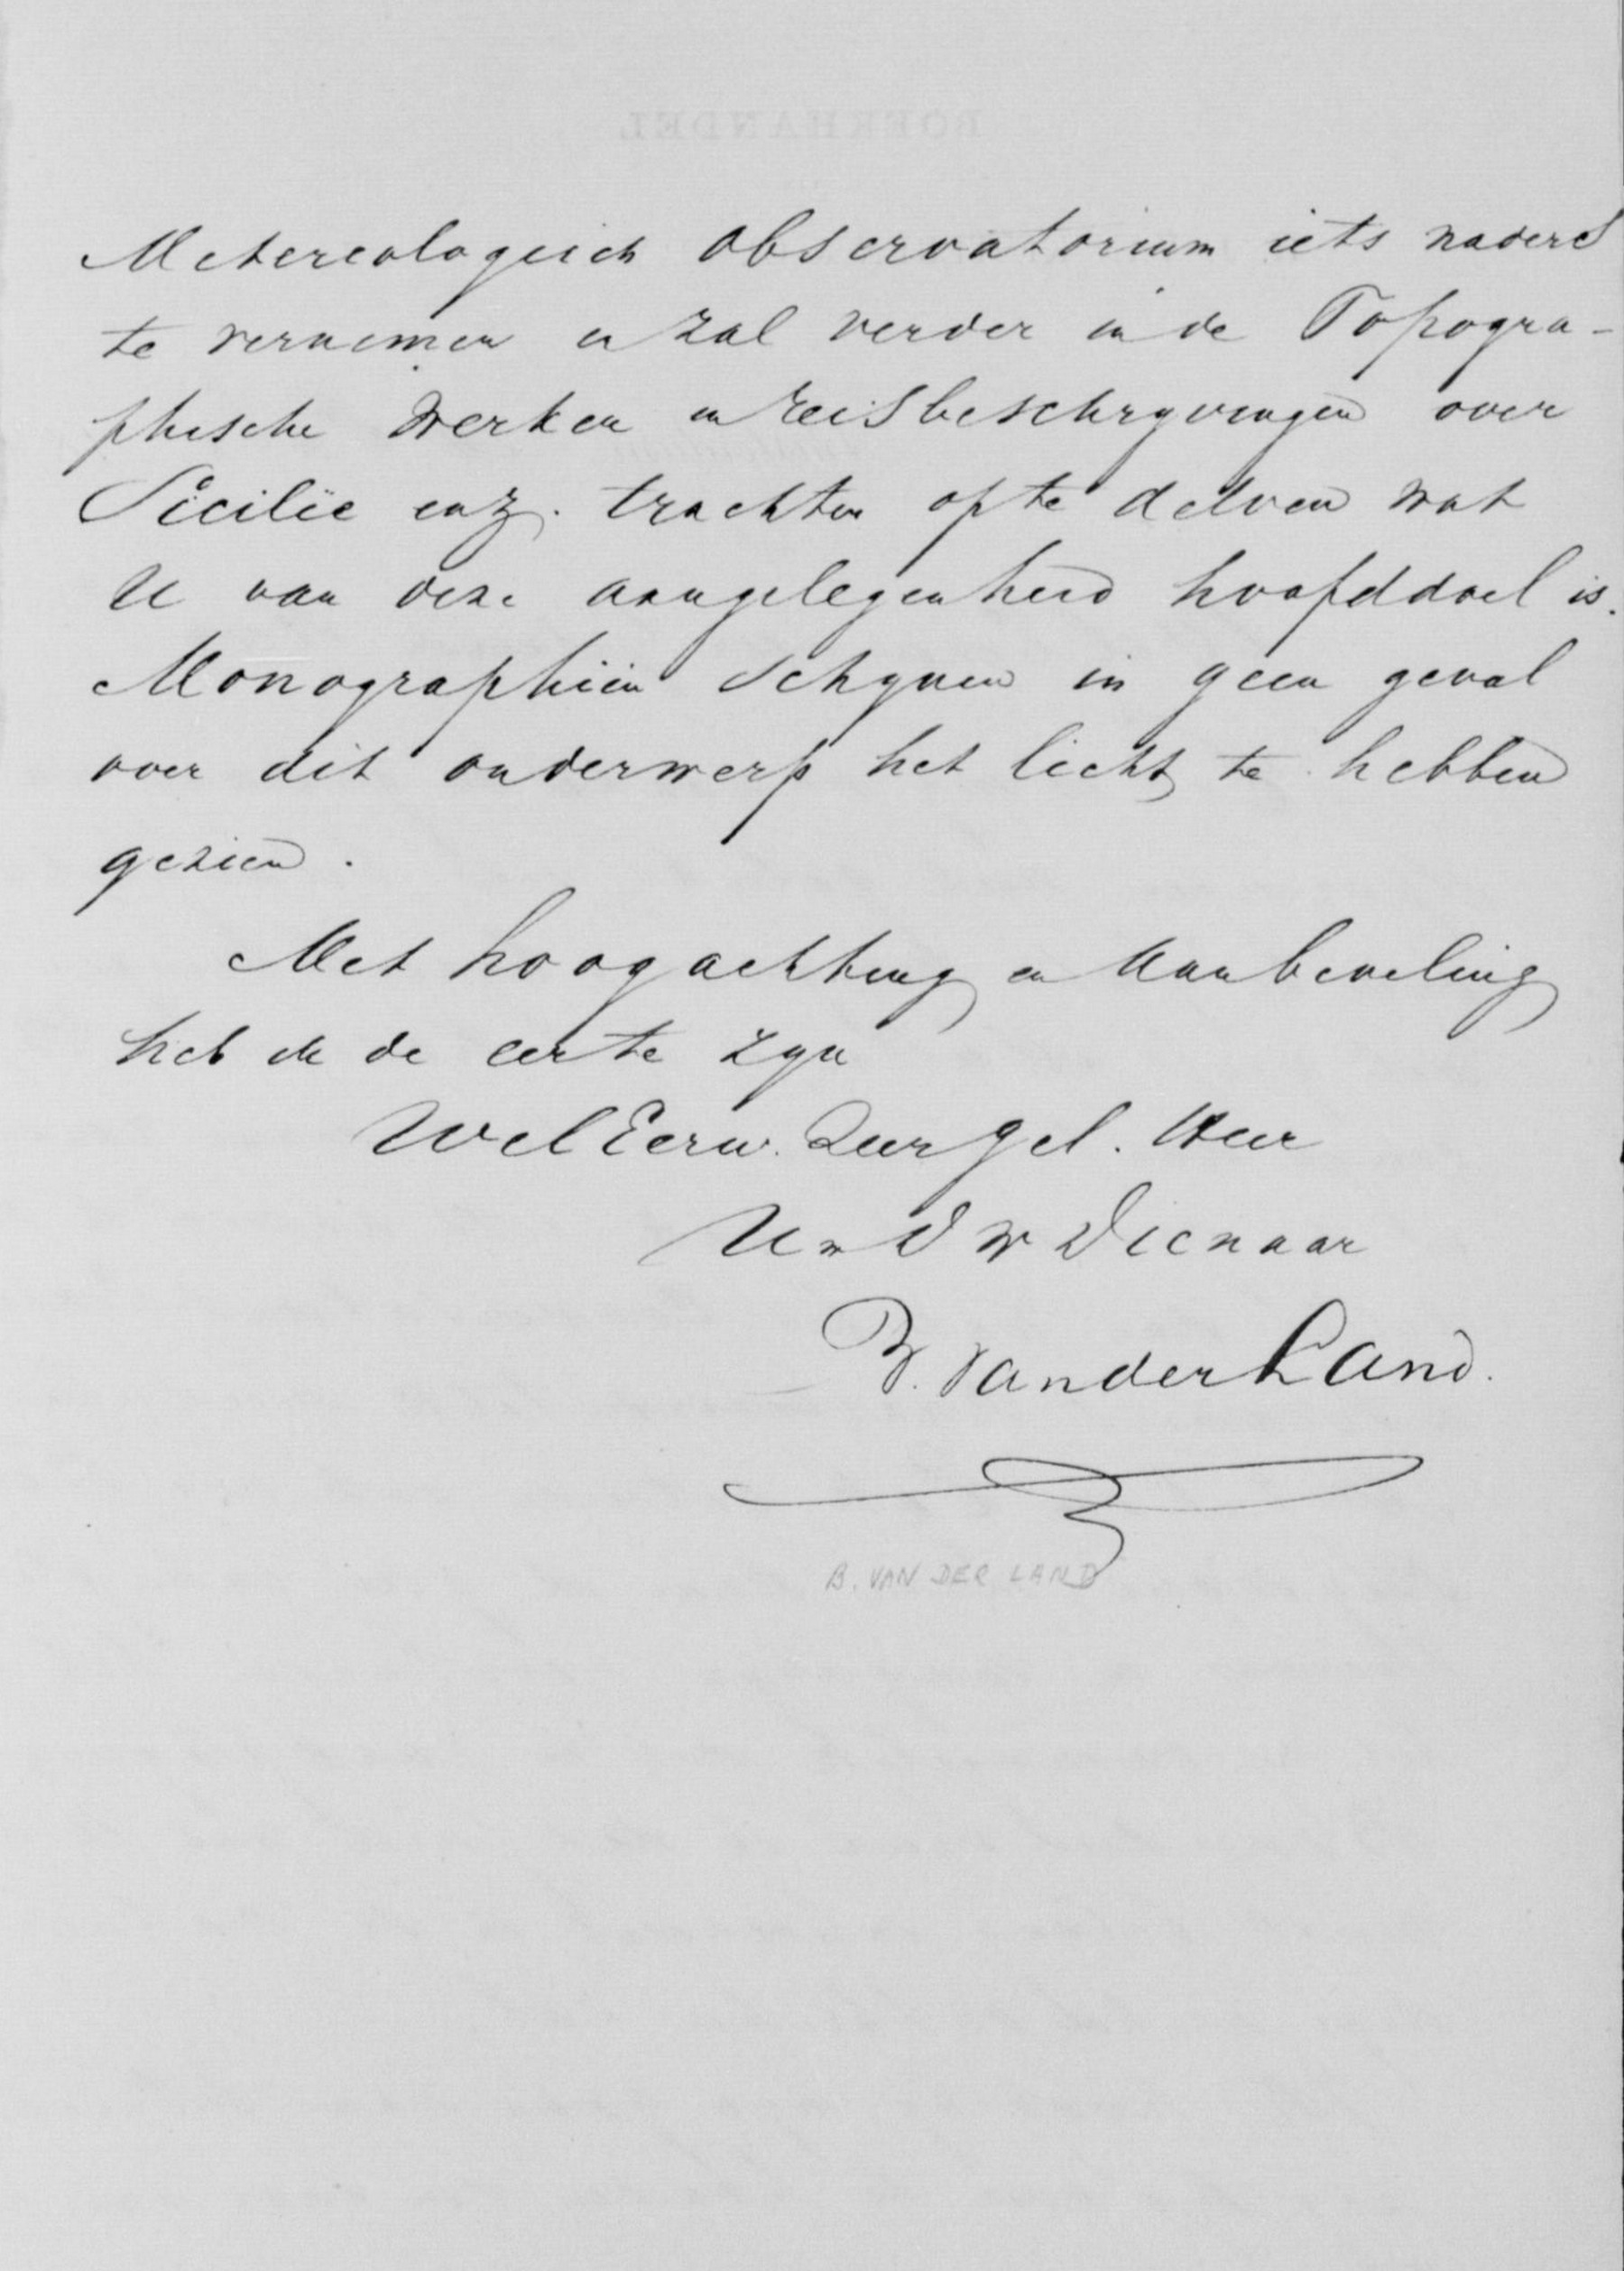 Metereologisch observatorium iets naders
te vernemen en zal verder in de Topogra-
phische werken en reisbeschryvingen over
Sicilië enz. trachten op te delven wat
U van deze aangelegenheid hoofddoel is.
Monographiën schynen in geen geval
over dit onderwerp het licht te hebben
gezien.
Met hoogachting en aanbeveling
heb ik de eer te zyn
WelEerw. Zeergel. Heer
Uw D W Dienaar
B. van der Land.
B. VAN DER LAND